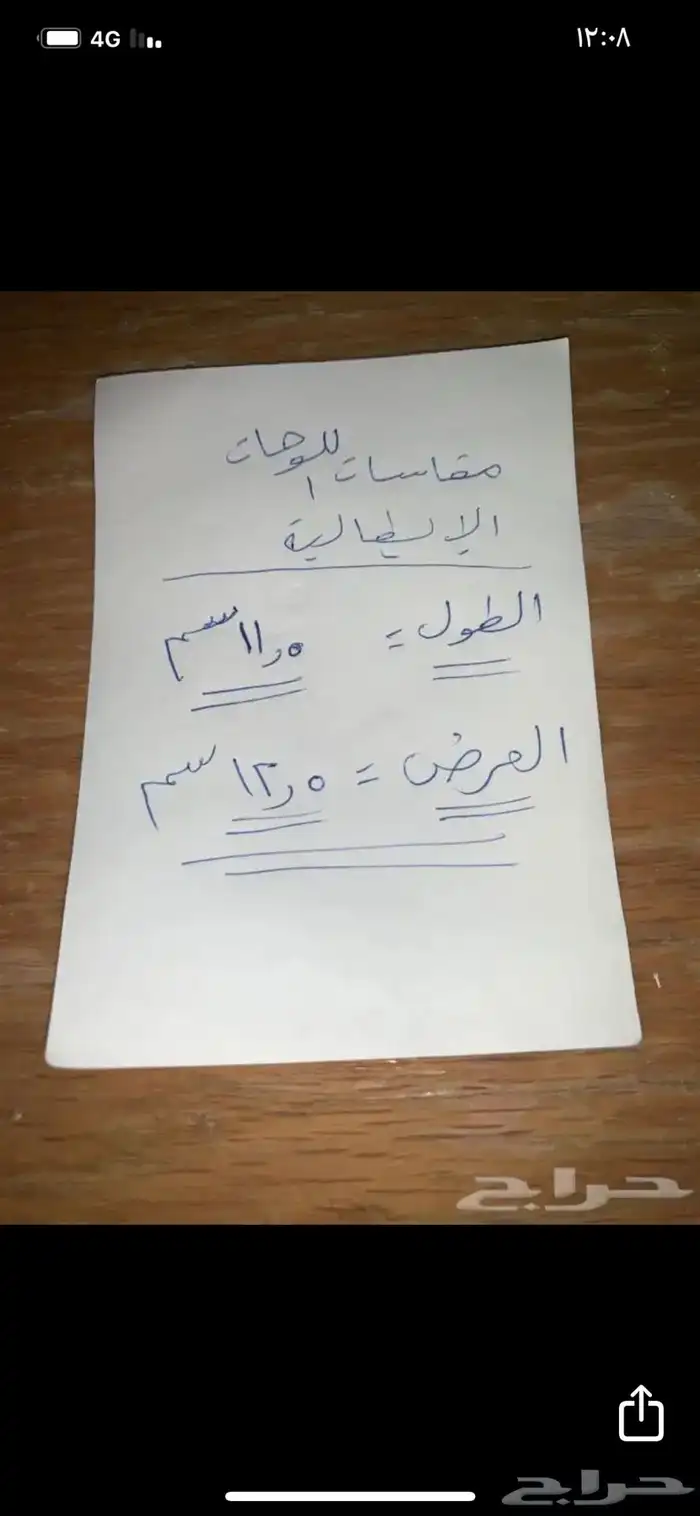 4G ١٢:٠٨
مقاسات اللوحات
الإيطالية
الطول = ١١٫٥ سم
العرض = ١٢٫٥ سم
حراج
حراج